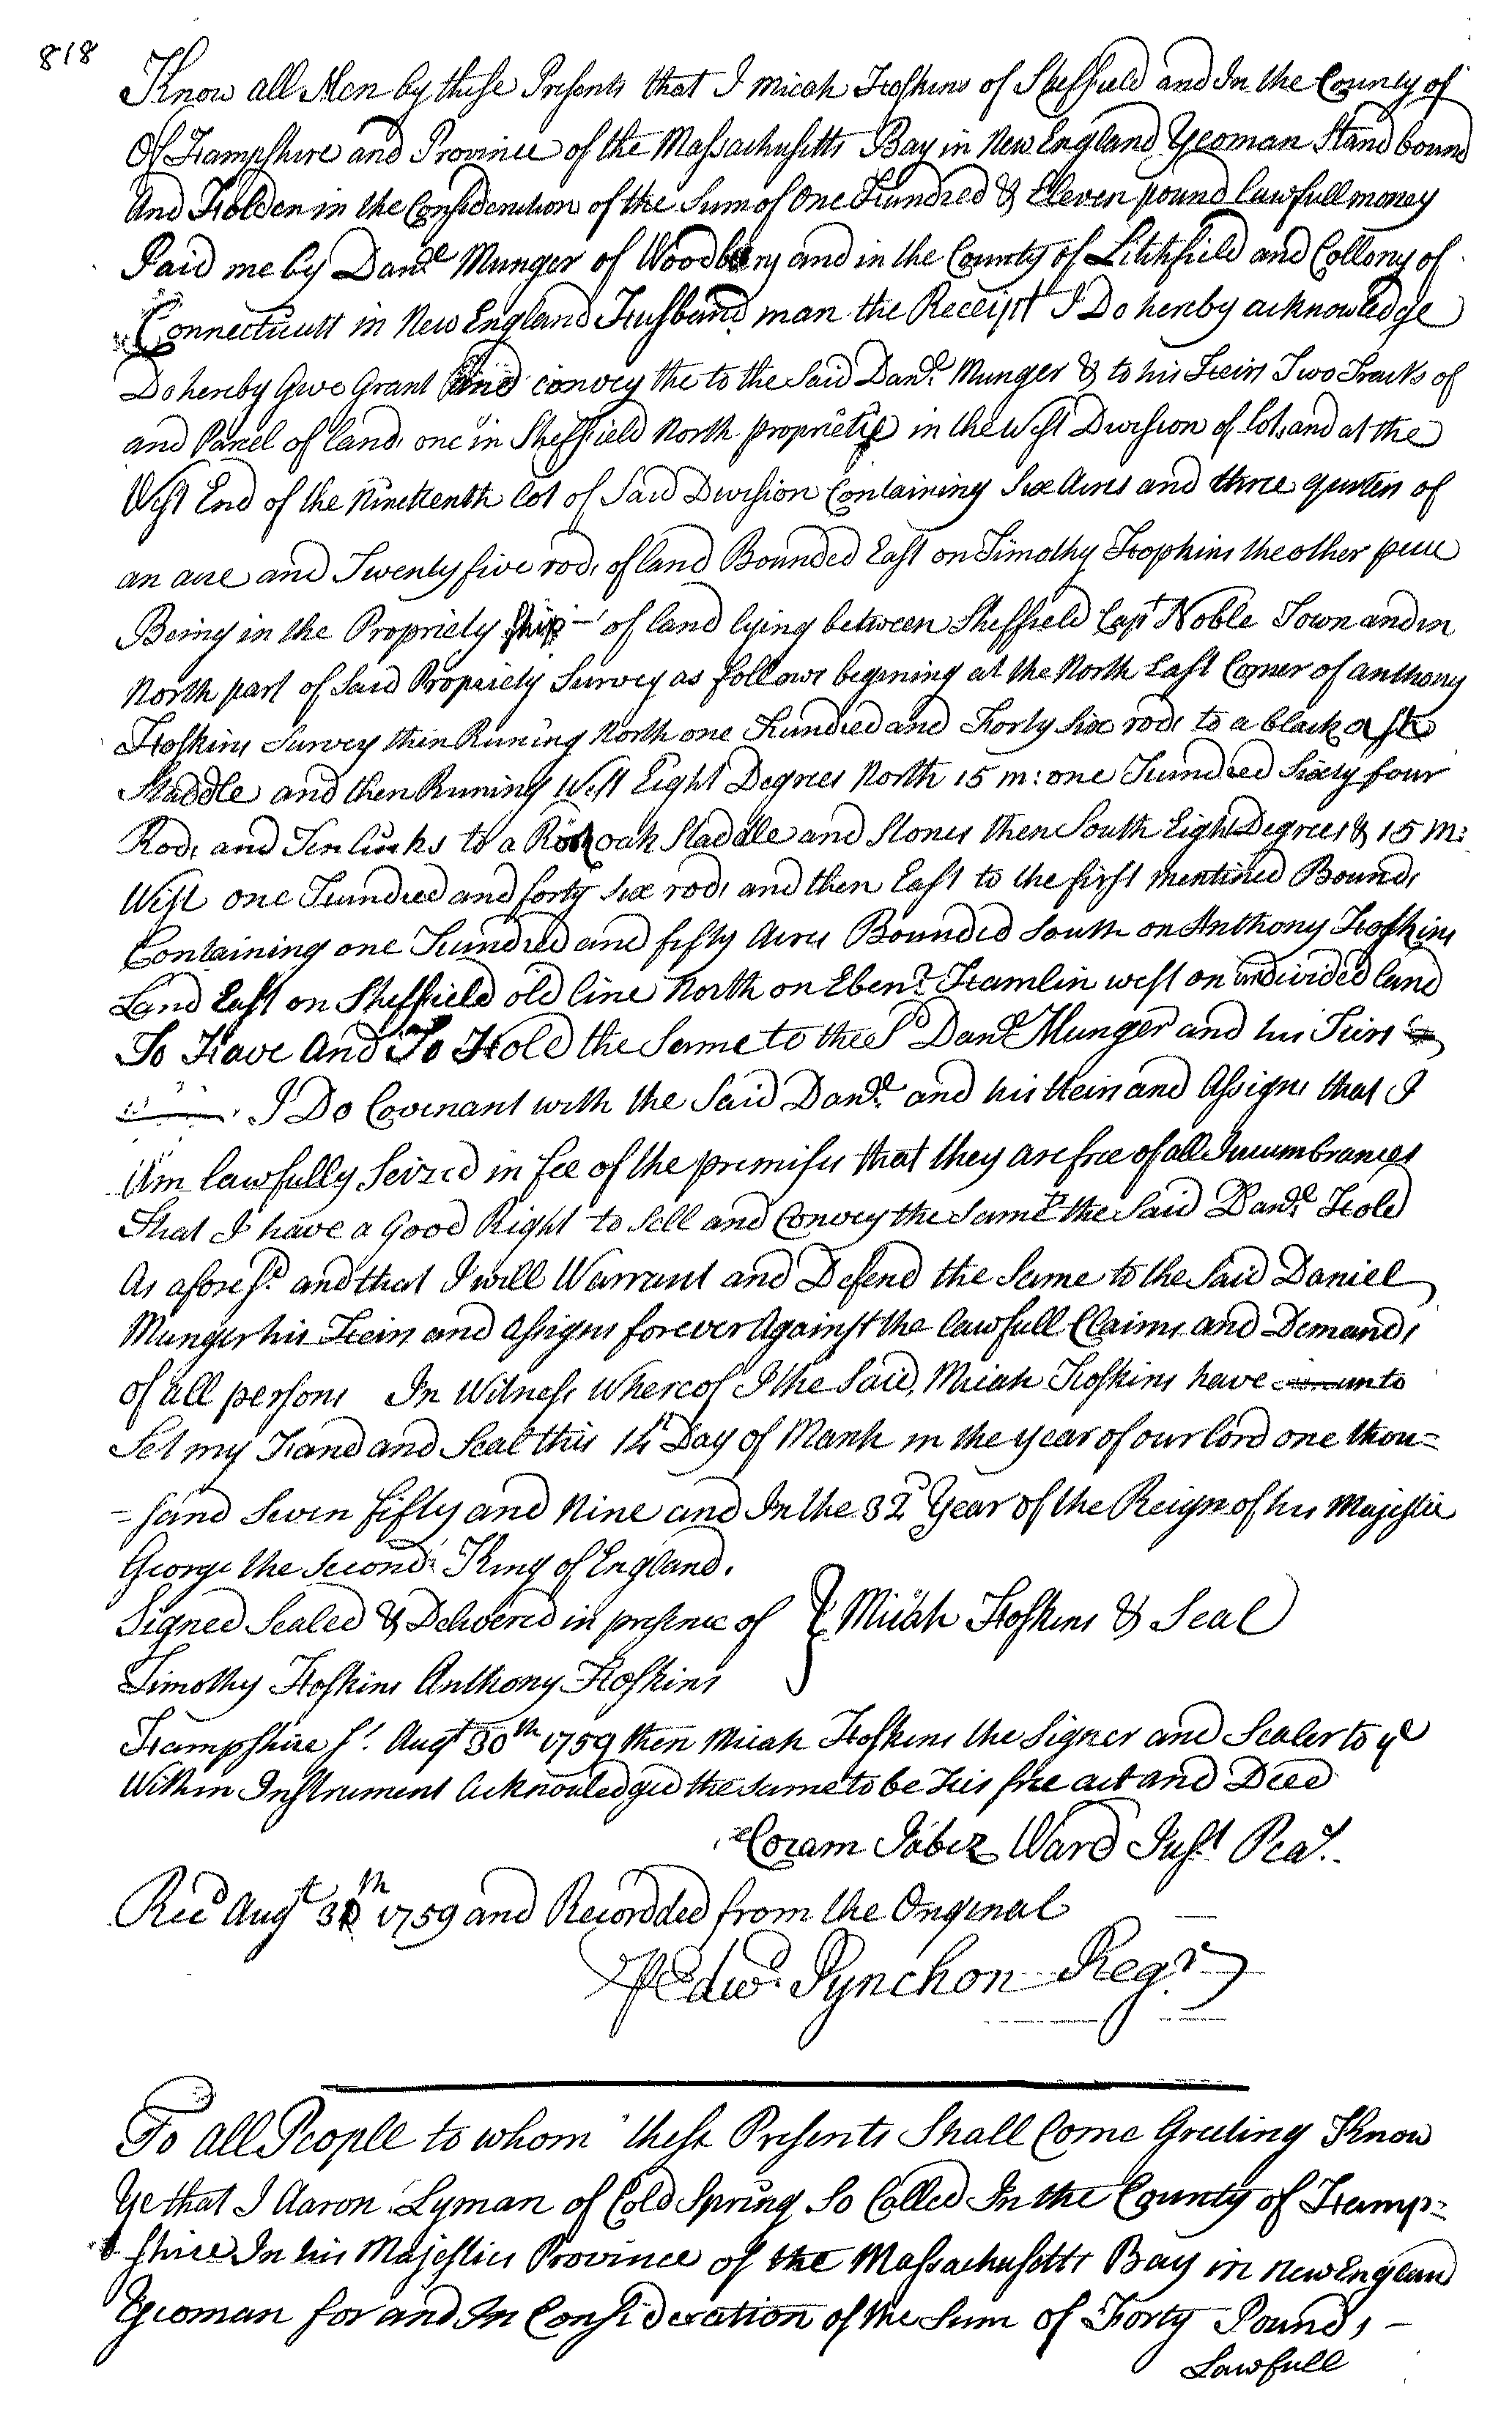 818
Know all Men by these Presents that I Micah Hoskins of Sheffield and In the County of
Of Hampshire and Province of the Massachusetts Bay in New England Yeoman Stand bound
And Holden in the Consideration of the Sum of One Hundred & Eleven pound lawfull money
Paid me by Danll Munger of Woodbury and in the County of Litchfield and Collony of
Connecticutt in New England Husband man the Receipt I Do hereby acknowledge
Do hereby Give Grant and convey the to the Said Danll Munger & to his Heirs Two Tracts of
and Parcel of land, one in Sheffield North propriety in the West Division of lots and at the
West End of the Nineteenth lot of Said Division Containing Six Acres and three quarters of
an acre and Twenty five rods of land Bounded East on Timothy Hopkins the other peice
Being in the Propriety of land lying between Sheffield Capt Noble Town and in
North part of Said Propriety Survey as follows begining at the North East Corner of anthony
Hoskins Survey then Runing North one Hundred and Forty Six rods to a black ash
Staddle and then Runing West Eight Degrees North 15 m: one Hundred Sixty four
Rods and Ten links to a Rock oak Staddle and Stones then South Eight Degrees & 15 M:
West one Hundred and forty Six rods and then East to the first mentined Bounds
Containing one Hundred and fifty Acres Bounded South on Anthony Hoskins
Land East on Sheffield old line North on Ebenr Hamlin west on undivided land
To Have And To Hold the Same to the Sd Danll Munger and his Heirs
I Do Covenant with the Said Danll and his Heirs and Assigns that I
Am lawfully Seized in fee of the premises that they are free of all Incumbrances
That I have a Good Right to Sell and Convey the Same to the Said Danll Hold
As aforesd and that I will Warrant and Defend the Same to the Said Daniel
Munger his Heirs and Assigns forever Against the lawfull Claims and Demands
of all persons In Witness Whereof I the Said Micah Hoskins have unto
Set my Hand and Seal this 14th Day of March in the year of our lord one thou=
=sand Seven fifty and Nine and In the 32d Year of the Reign of his Majestie
George the Second King of England.
Signed Sealed & Delivered in presence of } Micah Hoskins & Seal
Timothy Hoskins Anthony Hoskins
Hampshire Ss. Augt 30th 1759 then Micah Hoskins the Signer and Sealer to ye
Within Instrument Acknowledged the same to be His free act and Deed
Coram Jabez Ward Just Pea.
Recd Augt 30th 1759 and Recordded from the Original
Pr Edwd Pynchon Regr
To all People to whom these Presents Shall Come Greeting Know
Ye that I Aaron Lyman of Cold Spring So Called In the County of Hamp=
shire In his Majesties Province of the Massachusetts Bay in New England
Yeoman for and In Consideration of the Sum of Forty Pounds -
Lawfull